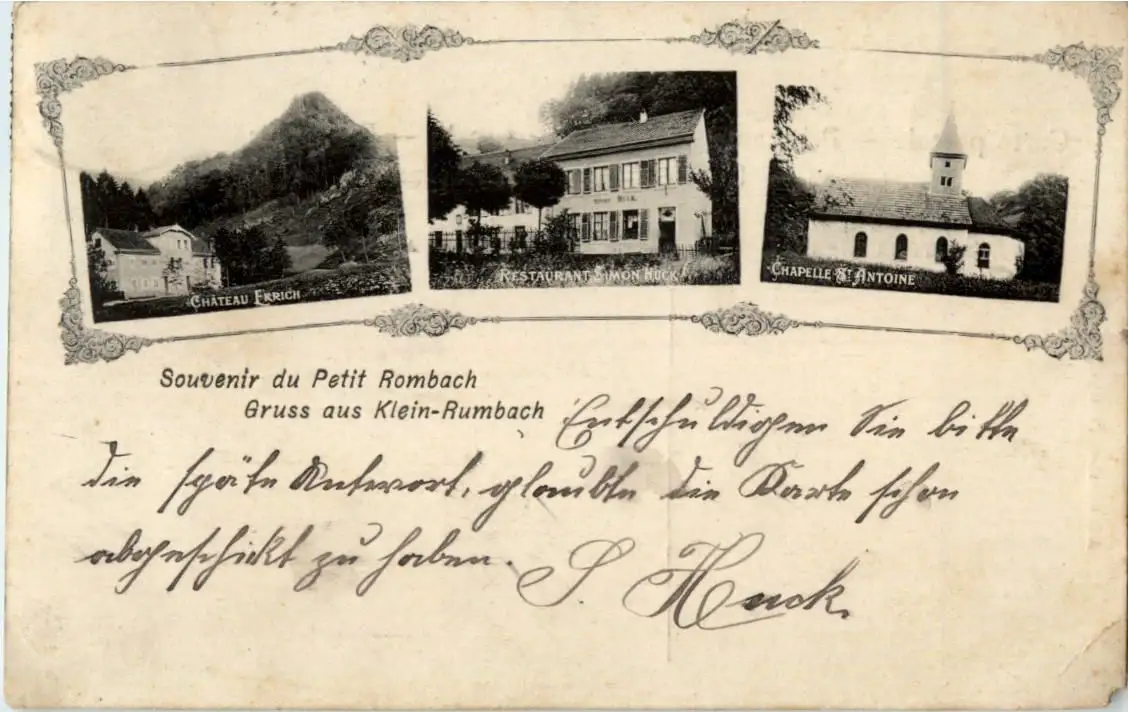 CHÂTEAU ERRICH
RESTAURANT SIMON HUCK
CHAPELLE ST ANTOINE
Souvenir du Petit Rombach
Gruss aus Klein-Rumbach
Entschuldigen Sie bitte
die späte Antwort, glaubte die Karte schon
abgeschickt zu haben. S. Huck.